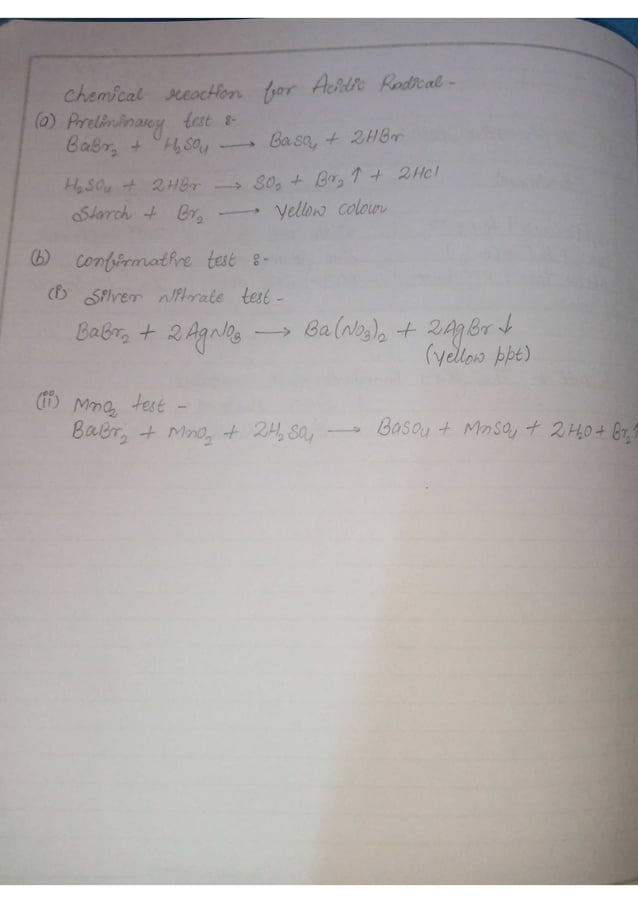 Chemical reaction for Acidic Radical -
(a) Preliminary test :-
BaBr₂ + H₂SO₄ → BaSO₄ + 2HBr
H₂SO₄ + 2HBr → SO₂ + Br₂ ↑ + 2HCl
Starch + Br₂ → Yellow colour
(b) confirmative test :-
(i) Silver nitrate test -
BaBr₂ + 2AgNO₃ → Ba(NO₃)₂ + 2AgBr ↓
(Yellow ppt)
(ii) MnO₂ test -
BaBr₂ + MnO₂ + 2H₂SO₄ → BaSO₄ + MnSO₄ + 2H₂O + Br₂ ↑